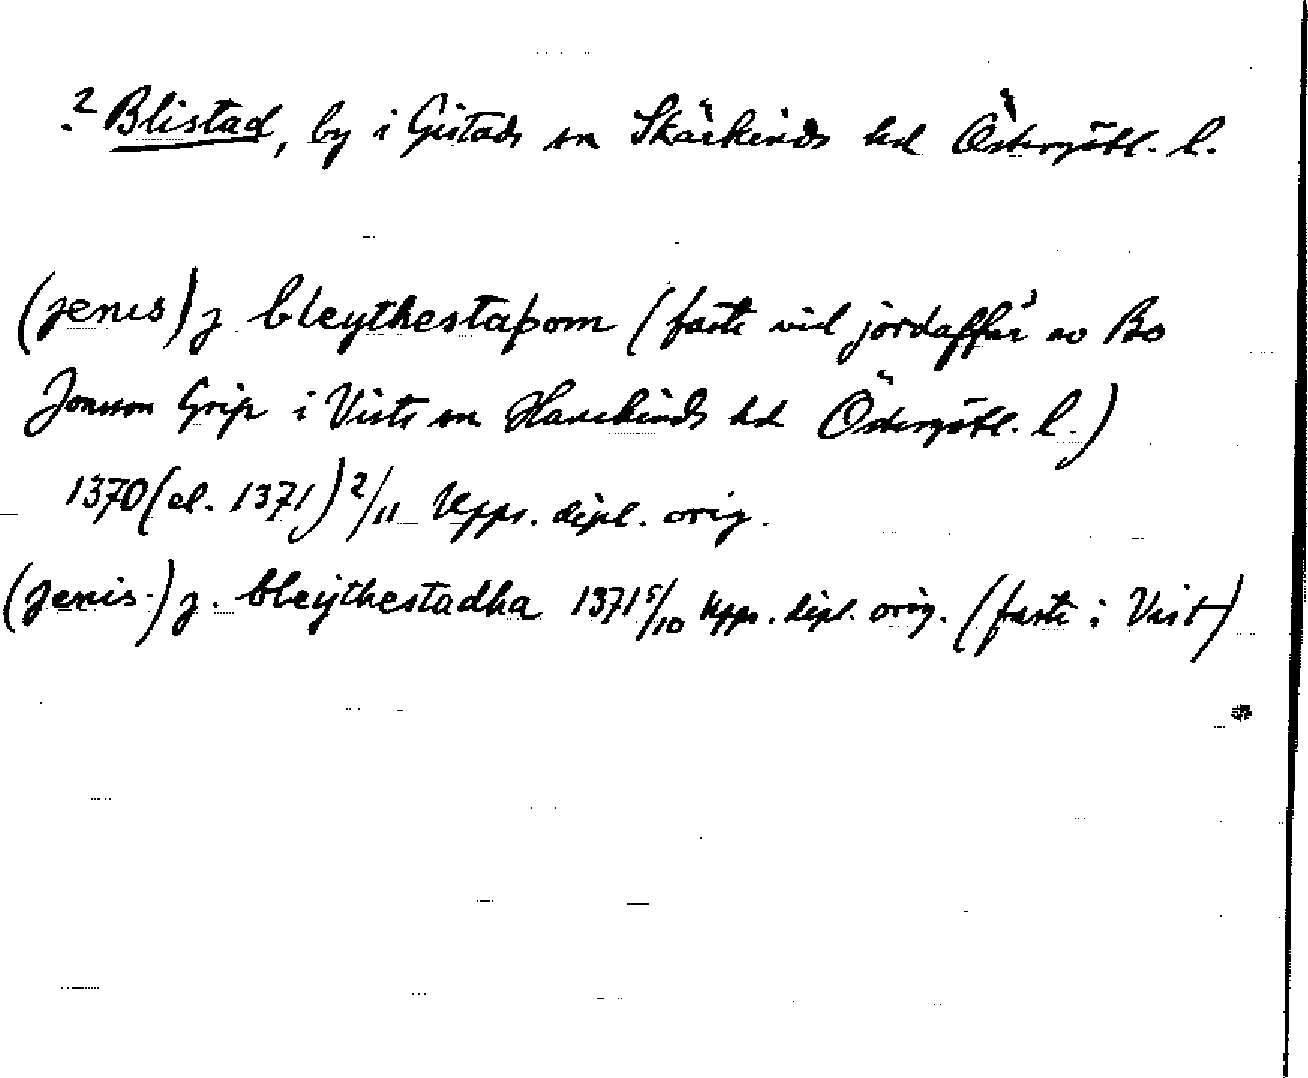 ? Blistad, by i Gistads sn Skärkinds hd Östergötl. l.
(jenis) j bleythestaþom (faste vid jordaffär av Bo
Jonsson Grip i Vists sn Hanekinds hd Östergötl. l.)
1370 (el. 1371) 2/11 Upps. dipl. orig.
(jenis) j. bleythestadha 1371 5/10 Upps. dipl. orig. (faste i Vist)